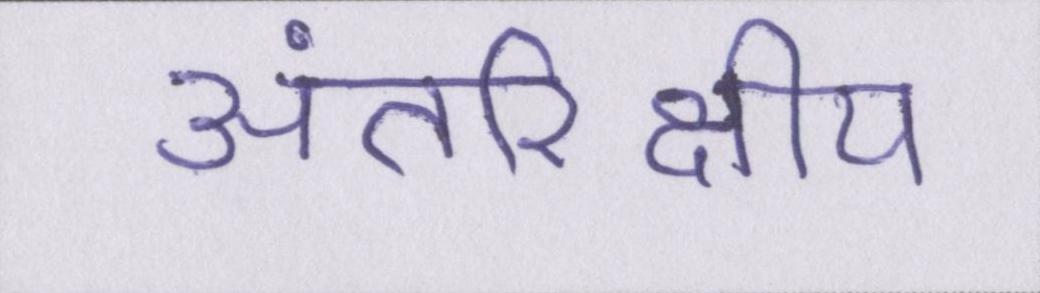 अंतरिक्षीय